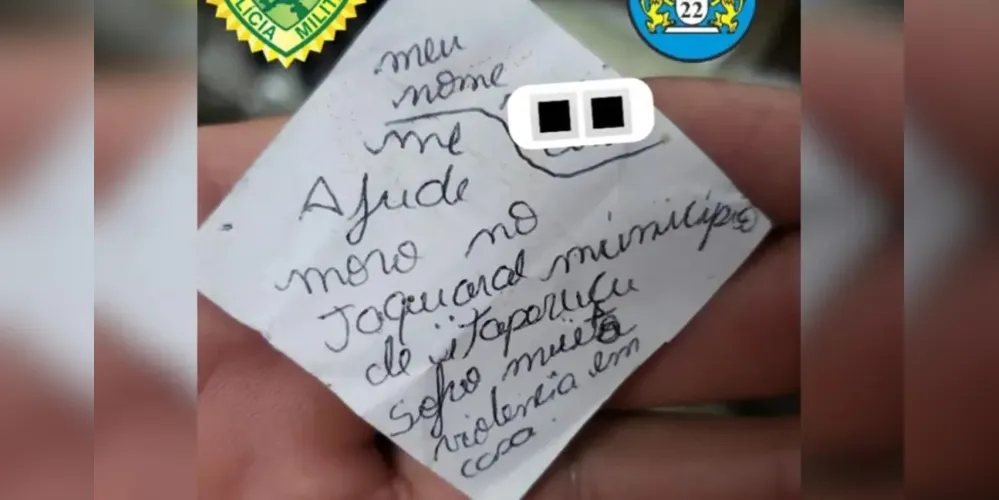 LICIA MILIT
22
meu
nome
me
Ajude
moro no
Jaquaral município
de itaperuçu
sofro muita
violencia em
casa.